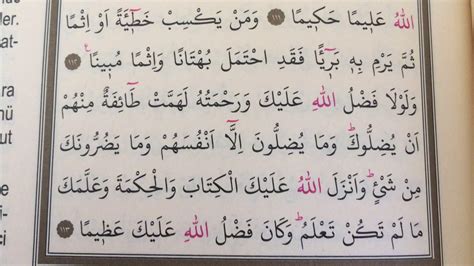 اللهُ عَلٖيمًا حَكٖيمًا ﴿١١١﴾ وَمَنْ يَكْسِبْ خَطٖٓيئَةً اَوْ اِثْمًا
ثُمَّ يَرْمِ بِهٖ بَرٖٓيـًٔا فَقَدِ احْتَمَلَ بُهْتَانًا وَاِثْمًا مُبٖينًا ﴿١١٢﴾
وَلَوْلَا فَضْلُ اللهِ عَلَيْكَ وَرَحْمَتُهُ لَهَمَّتْ طَٓائِفَةٌ مِنْهُمْ
اَنْ يُضِلُّوكَ وَمَا يُضِلُّونَ اِلَّٓا اَنْفُسَهُمْ وَمَا يَضُرُّونَكَ
مِنْ شَيْءٍ وَاَنْزَلَ اللهُ عَلَيْكَ الْكِتَابَ وَالْحِكْمَةَ وَعَلَّمَكَ
مَا لَمْ تَكُنْ تَعْلَمُ وَكَانَ فَضْلُ اللهِ عَلَيْكَ عَظٖيمًا ﴿١١٣﴾